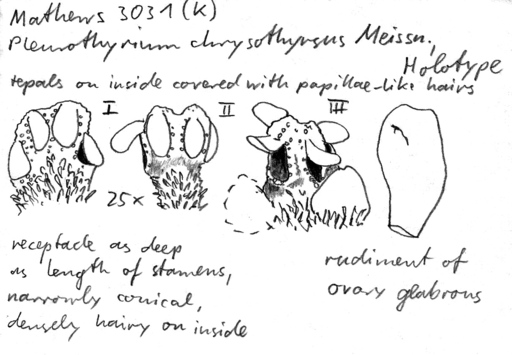 Mathews 3031 (K)
Pleurothyrium chrysothyrsus Meissn.,
Holotype
tepals on inside covered with papillae-like hairs
I II III
25x
receptacle as deep
as length of stamens,
narrowly conical,
densely hairy on inside
rudiment of
ovary glabrous